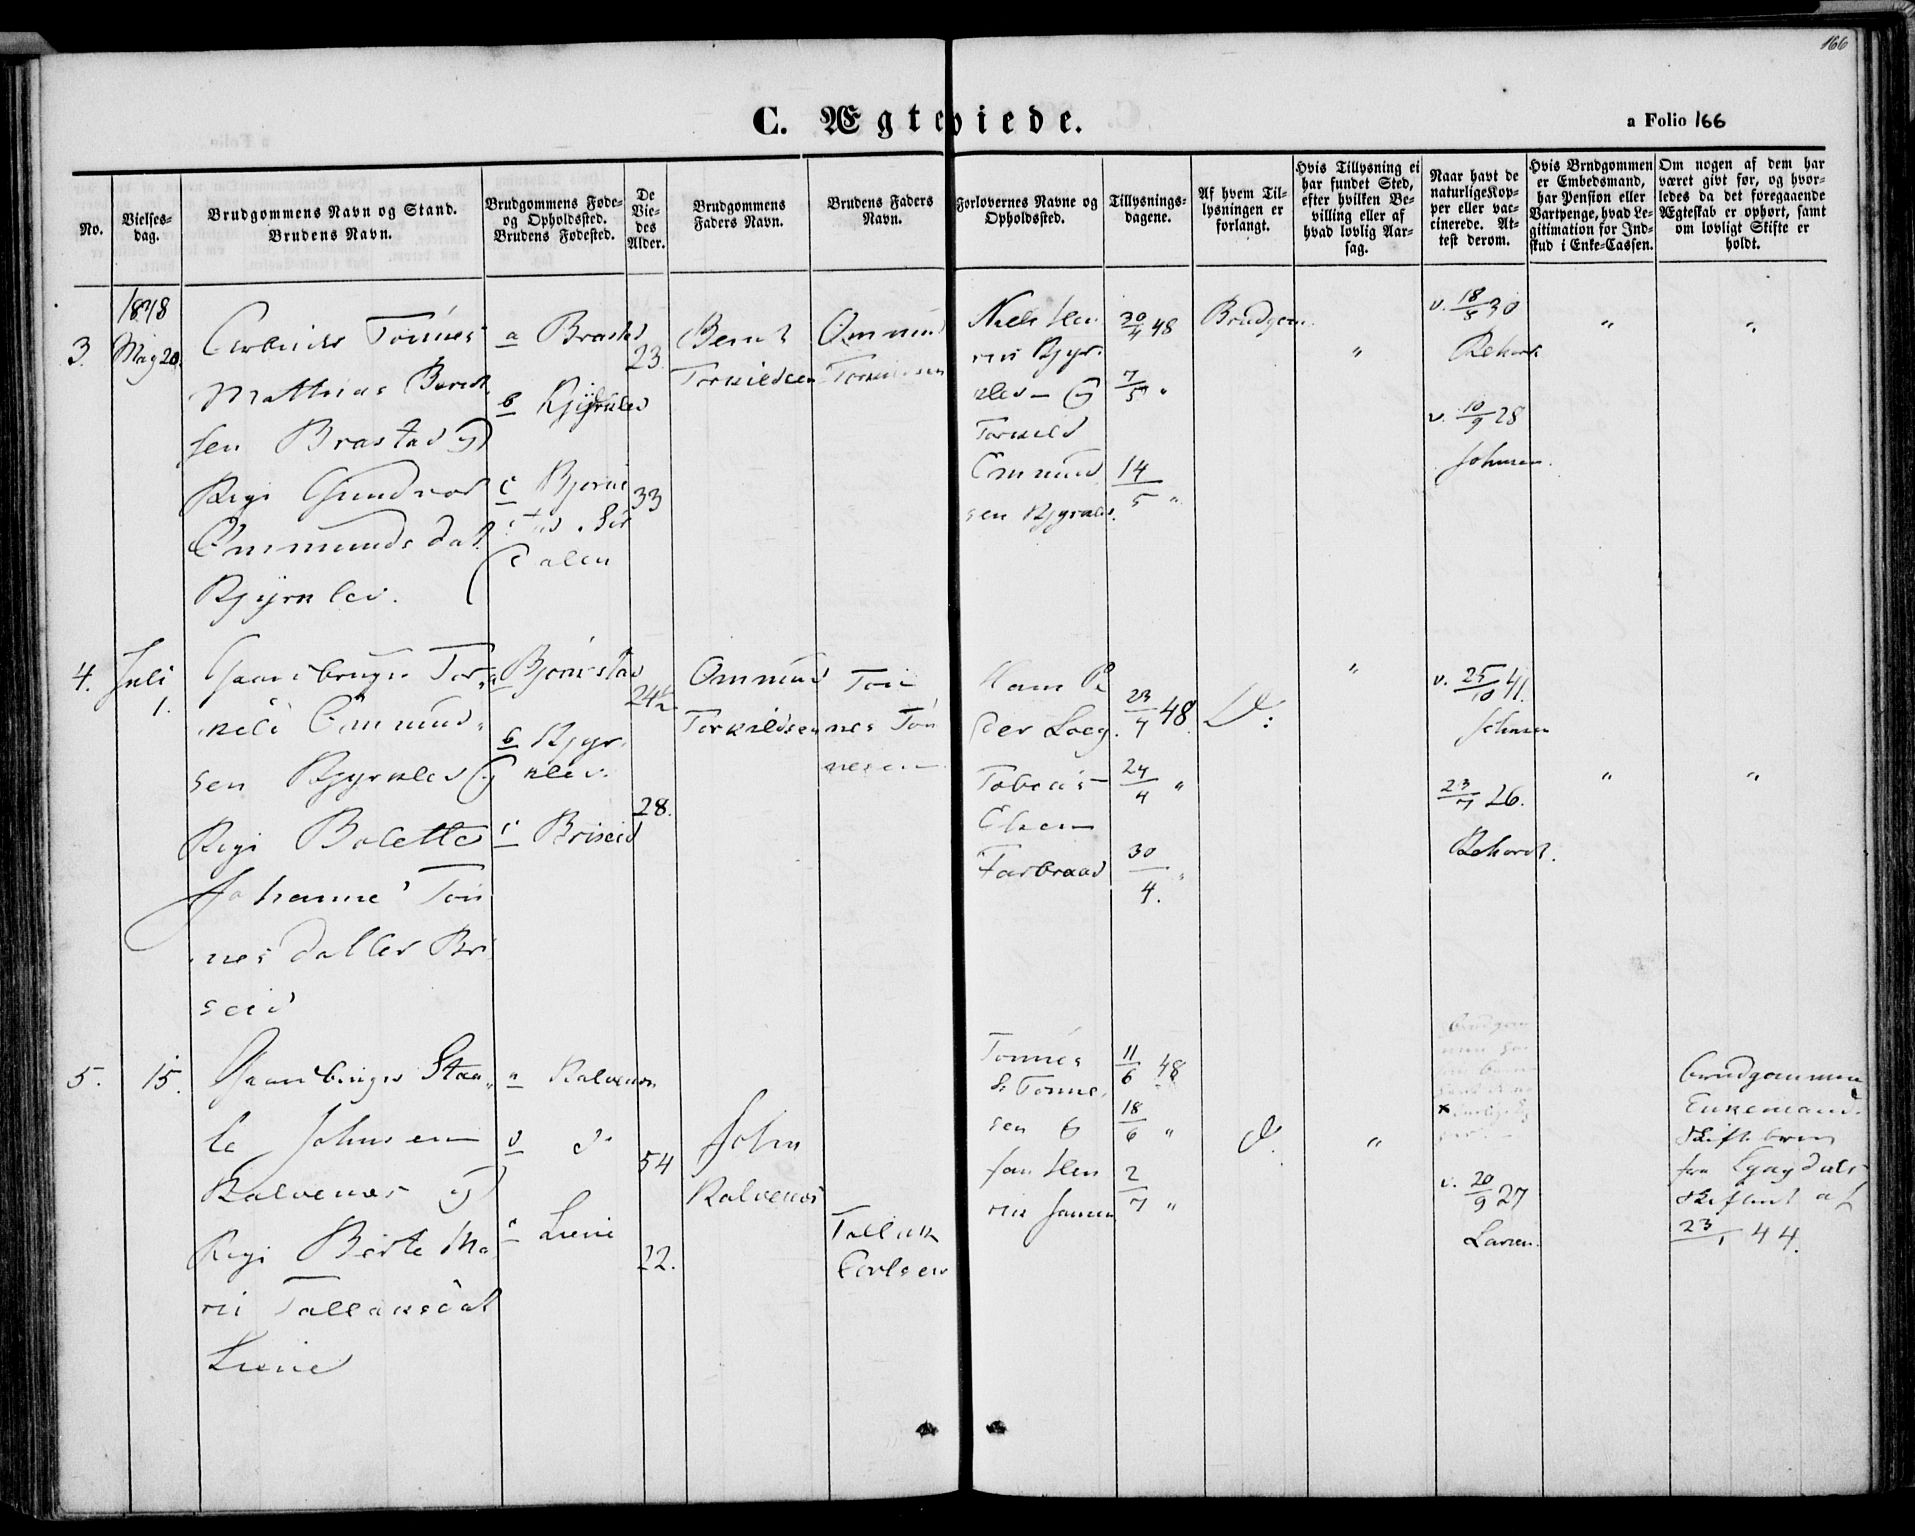 166
C. Ægteviede.
a Folio 166
No.
Vielses-
dag.
Brudgommens Navn og Stand.
Brudens Navn.
Brudgommens Føde-
og Opholdssted.
Brudens Fødested.
De
Vie-
des
Alder.
Brudgommens
Faders Navn.
Brudens Faders
Navn.
Forlovernes Navne og
Opholdssted.
Tillysnings-
dagene.
Af hvem Til-
lysningen er
forlangt.
Hvis Tillysning ei
har fundet Sted,
efter hvilken Be-
villing eller af
hvad lovlig Aar-
sag.
Naar havt de
naturlige Kop-
per eller vac-
cinerede. At-
test derom.
Hvis Brudgommen
er Embedsmand,
har Pension eller
Vartpenge, hvad Le-
gitimation for Ind-
skud i Enke-Cassen.
Om nogen af dem har
været givt før, og hvor-
ledes da det foregaaende
Ægteskab er ophørt, samt
om lovligt Skifte er
holdt.
1848
3.
May 20.
Tønnes
Mathias Berent
sen Brastad og
Pige Gundvor
Ommunds dat
Kjyrklev.
a Brastad
b Kjyrklev
c Bjørne
stad Sir
dalen
23
33
Bernt
Torkildsen
Ommund
Torkildsen
Niels Hen
rik Kjyr
klev og
Torkild
Ommund
sen Kjyrklev.
30/4 48
7/5 "
14/5 "
Brudgom
"
v. 18/8 30
v. 10/9 28
Johnsen.
"
"
4.
Juli
1.
Gaardbruger Tor
kild Ommund
sen Kjyrklev og
Pige Bolette
Johanne Tøn
nesdatter Bri
seid
a Bjørnestad
b Kjyr
klev.
c Briseid
24½
28.
Ommund
Torkildsen
Tøn
nes Tøn
nesen
Hans Pe
der Loeg.
Tobias
Elsen
Farbraad
23/4 48
24/4 "
30/4 "
D:
"
v. 25/10 41.
Johnsen
23/7 26.
"
"
5.
15.
Gaardbruger Staa
le Johnsen
Kalvenes og
Pige Berte Ma
rie Tallaksdat
Lunie
a Kalvenes
b do
c Lunie
54
22.
John
Kalvenes
Tallak
Carlsen
Tønnes
S. Tønne
sen &
Jan Hen
rik Jansen
11/6 48
18/6 "
2/7 "
d.
"
v. 20/9 27
Larsen.
Brudgommen
Enkemand.
Skiftebrev
fra Lyngdals
Skifteret af
23/1 44.